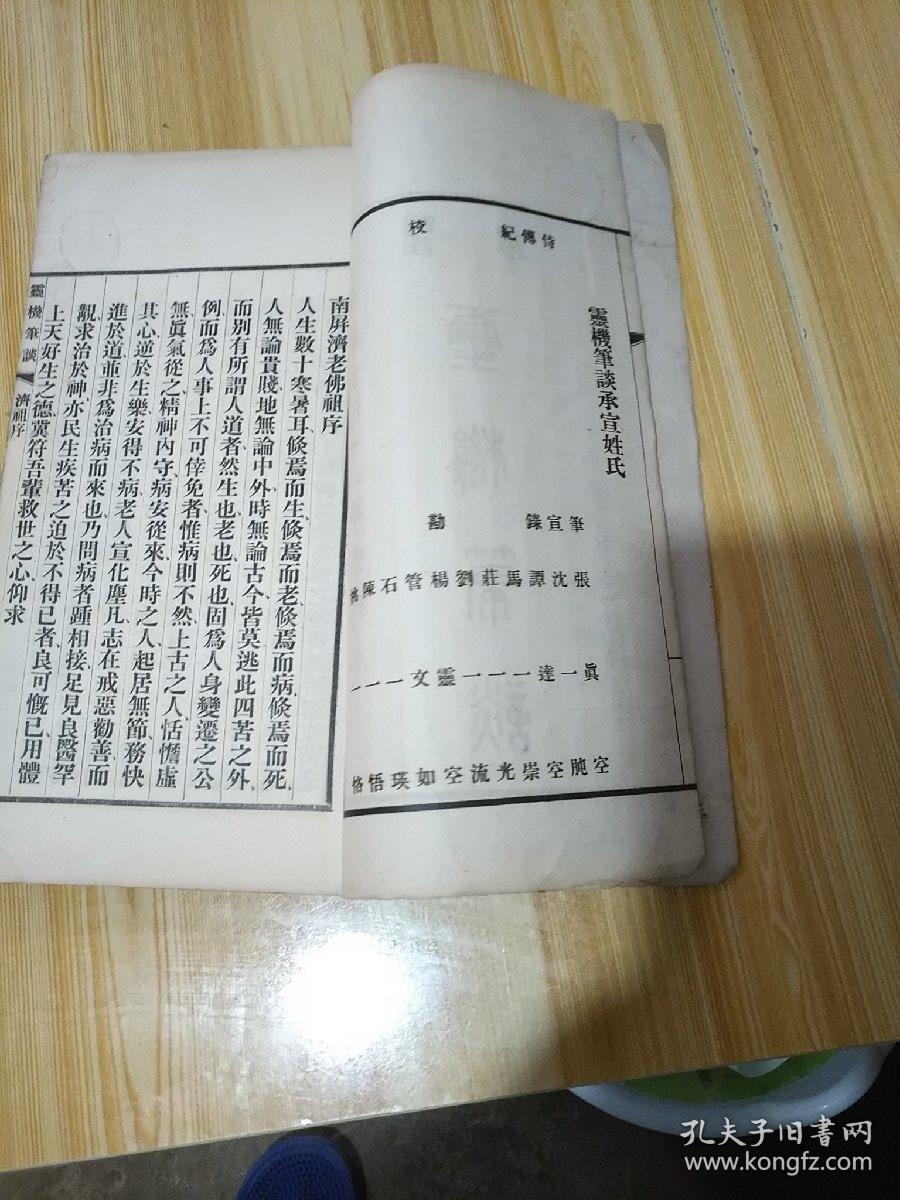 靈機筆談承宣姓氏
侍筆 張眞空
傳宣 沈一脃
紀錄 譚達空
馬一崇
莊一光
劉一流
校勘 楊靈空
管文如
石一瑛
陳一悟
南屏濟老佛祖序
人生數十寒暑耳、倏焉而生、倏焉而老、倏焉而病、倏焉而死、
人無論貴賤、地無論中外、時無論古今、皆莫逃此四苦之外、
而別有所謂人道者、然生也、老也、死也、固爲人身變遷之公
例、而爲人事上不可倖免者、惟病則不然、上古之人、恬憺虛
無、眞氣從之、精神內守、病安從來、今時之人、起居無節、務快
其心、逆於生樂、安得不病、老人宣化塵凡、志在戒惡勸善、而
進於道、並非爲治病而來也、乃問病者踵相接、足見良醫罕
覯、求治於神、亦民生疾苦之迫於不得已者、良可慨已、用體
上天好生之德、冀符吾輩救世之心、仰求
靈機筆談
濟祖序
孔夫子旧书网
www.kongfz.com